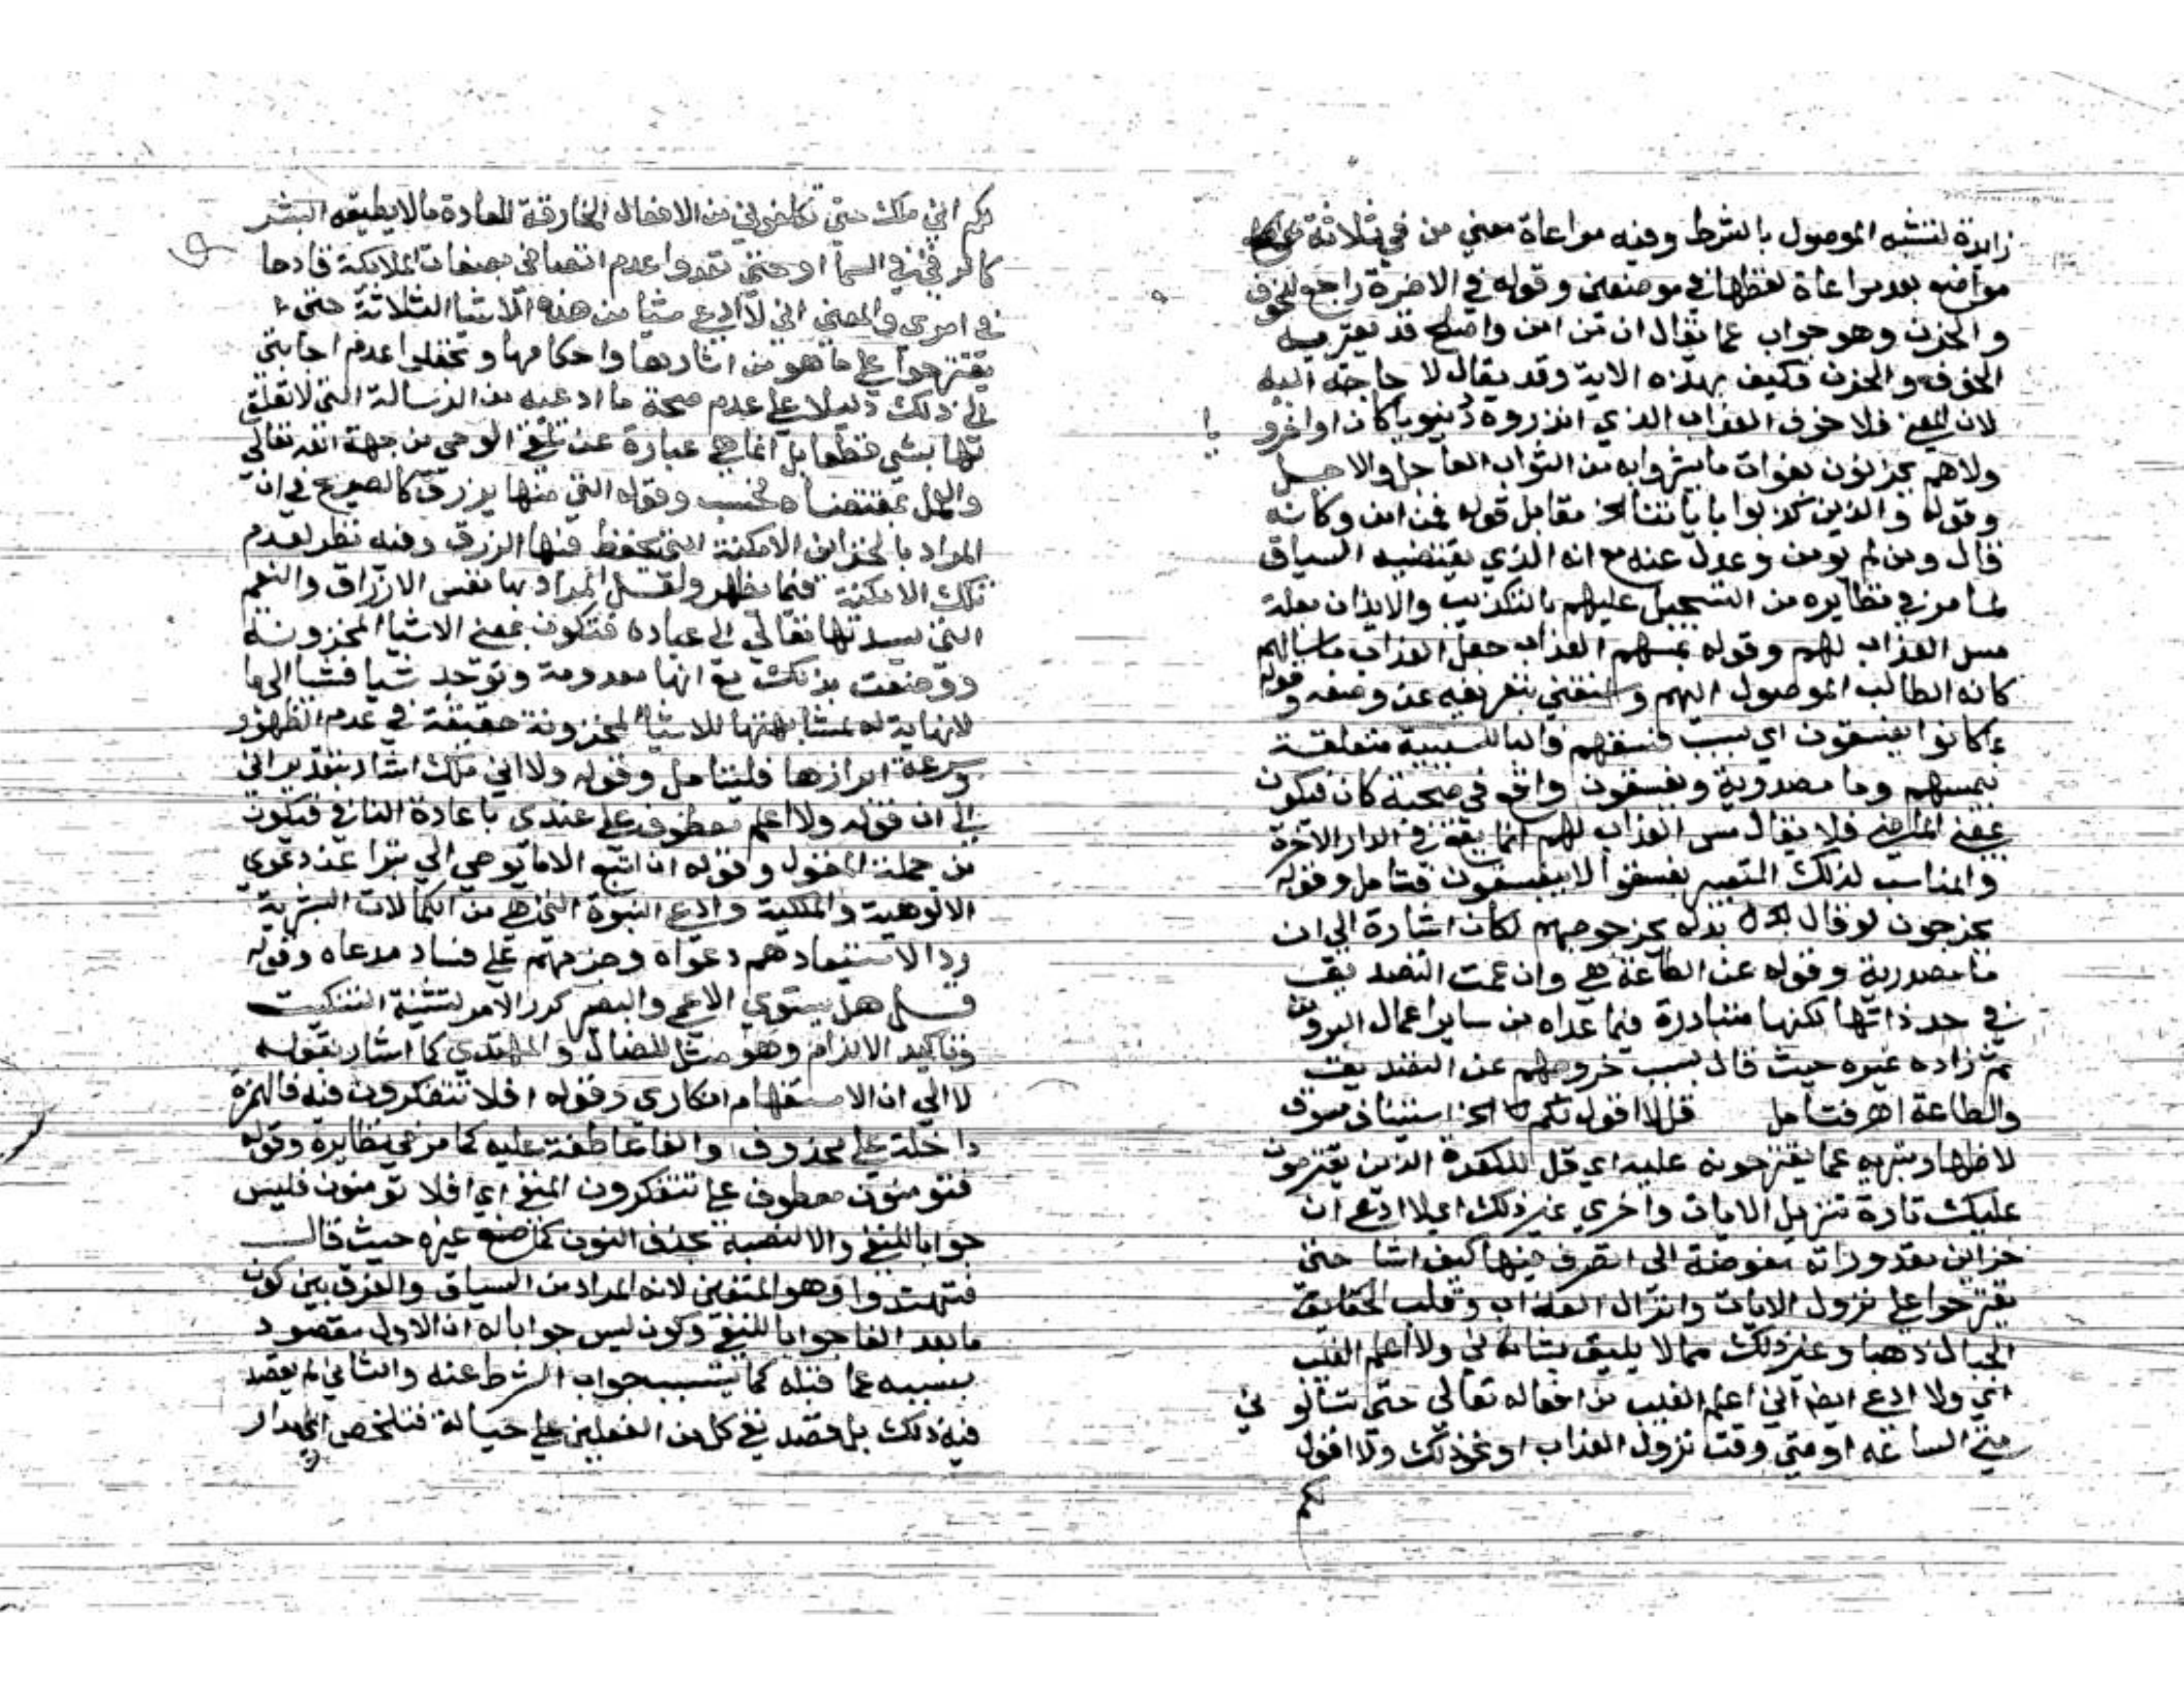 زايدة لتشبه الموصول بالشرط وفيه مراعاة معني من في ثلاثة
مواضع بعد مراعاة لفظها في موضعين وقوله في الاخرة راجع للخوف
والحزن وهو جواب عما يقال ان من امن واصلح قد يعتريه
الخوف والحزن فكيف بهذه الاية وقد يقال لا حاجة اليه
لان المعني فلا خوف العذاب الذي انذروه دنيويا كان او اخرويا
ولاهم يحزنون بفوات ما بشروا به من الثواب العاجل والاجل
وقوله والذين كذبوا باياتنا الخ مقابل قوله فمن امن وكانه
قال ومن لم يومن وعدل عنه مع انه الذي يقتضيه السياق
لما مر في نظايره من التسجيل عليهم بالتكذيب والايذان بعلة
مس العذاب لهم وقوله يمسهم العذاب جعل العذاب ماسا لهم
كانه الطالب الموصول اليهم واستغني بتعريفه عن وصفه وقوله
بما كانوا يفسقون اي بسبب فسقهم فالبا للسببية متعلقة
بيمسهم وما مصدرية ويفسقون واقع في صحبة كان فيكون
بمعني الماضي فلا يقال مس العذاب لهم انما يقع في الدار الاخرة
والمناسب لذلك التعبير بفسقوا لا بيفسقون فتامل وقوله
يخرجون لو قال بدله بخروجهم لكان اشارة الي ان
ما مصدرية وقوله عن الطاعة هي وان عمت التصديق
في حد ذاتها لكنها متبادرة فيما عداه من ساير اعمال البر ومن
ثم زاده غيره حيث قال بسبب خروجهم عن التصديق
والطاعة اهـ فتامل قل لا اقول لكم الخ استيناف مسوق
لاظهار تبريه عما يقترحونه عليه اي قل للكفرة الذين يقترحون
عليك تارة تنزيل الايات واخري غير ذلك اي لا ادعي ان
خزاين مقدوراته مفوضة الي اتصرف فيها كيف اشا حتي
يقترحوا علي نزول الايات وانزال العذاب وقلب الحقايق
الجبال ذهبا وغير ذلك مما لا يليق بشاني ولا اعلم الغيب
اي ولا ادعي ايضا اني اعلم الغيب من افعاله تعالي حتي تسالوني
متي الساعة او متي وقت نزول العذاب او نحو ذلك ولا اقول
لكم
لكم اني ملك حتي تكلفوني من الافعال الخارقة للعادة ما لا يطيقه البشر
كالرقي في السما او حتي تعدوا عدم اتصافي بصفات الملايكة قادحا
في امري والمعني اني لا ادعي شيا من هذه الاشيا الثلاثة حتي
يقترحوا علي ما هو من اثارها واحكامها وتجعلوا عدم اجابتي
الي ذلك دليلا علي عدم صحة ما ادعيه من الرسالة التي لا تعلق
لها بشي قطعا بل انما هي عبارة عن تلقي الوحي من جهة الله تعالي
والعمل بمقتضاه فحسب وقوله التي منها يرزق كالصريح في ان
المراد بالخزاين الامكنة التي تحفظ فيها الرزق وفيه نظر لعدم
تلك الامكنة فيما يظهر ولعل المراد بها نفس الارزاق والنعم
التي يسديها تعالي الي عباده فتكون بمعني الاشيا المخزونة
ووصفت بذلك مع انها معدومة وتوجد شيا فشيا الي ما
لا نهاية له بمشابهتها للاشيا المخزونة حقيقة في عدم الظهور
وسرعة ابرازها فليتامل وقوله ولا اني ملك اشار بتقدير اني
الي ان قوله ولا اعلم معطوف علي عندي باعادة النافي فيكون
من جملة المقول وقوله ان اتبع الا ما يوحي الي تبرا عن دعوي
الالوهية والملكية وادعي النبوة التي هي من الكمالات البشرية
ردا لاستبعادهم دعواه وجزمهم علي فساد مدعاه وقوله
قل هل يستوي الاعمي والبصير كرر الامر لتثنية التبكيت
وتاكيد الالزام وهو مثل للضال والمهتدي كما اشار بقوله
لا الي ان الاستفهام انكاري وقوله افلا تتفكرون فيه فالهمزة
داخلة علي محذوف والفا عاطفة عليه كما مر في نظايره وقوله
فتومنون معطوف علي تتفكرون المنفي اي افلا تومنون فليس
جوابا للنفي والا لنصبه بحذف النون كما صنع غيره حيث قال
فتهتدوا وهو المتعين لانه المراد من السياق والفرق بين كون
ما بعد الفا جوابا للنفي وكونه ليس جوابا له ان الاول مقصود
بسببه عما قبله كما يتسبب جواب الشرط عنه والثاني لم يقصد
فيه ذلك بل قصد نفي كل من الفعلين علي حياله فتلخص ان المدار